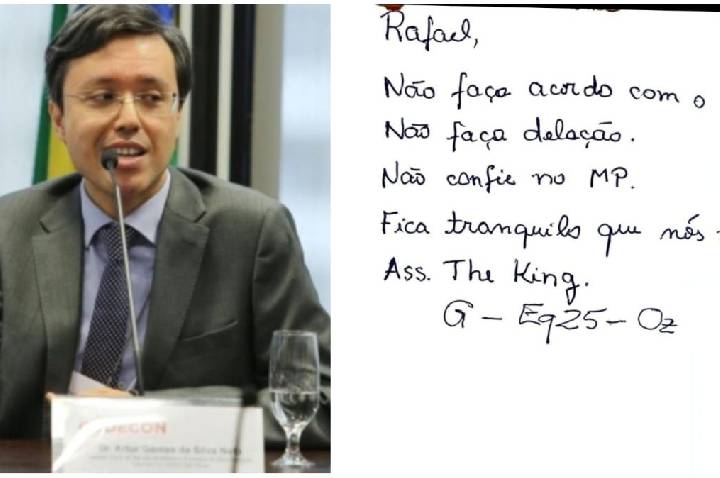 CODECON
Dr. Artur Gomes da Silva Neto
Rafael,
Não faça acordo com o
Não faça delação.
Não confie no MP.
Fica tranquilo que nós
Ass. The King.
G - Eq25 - Oz